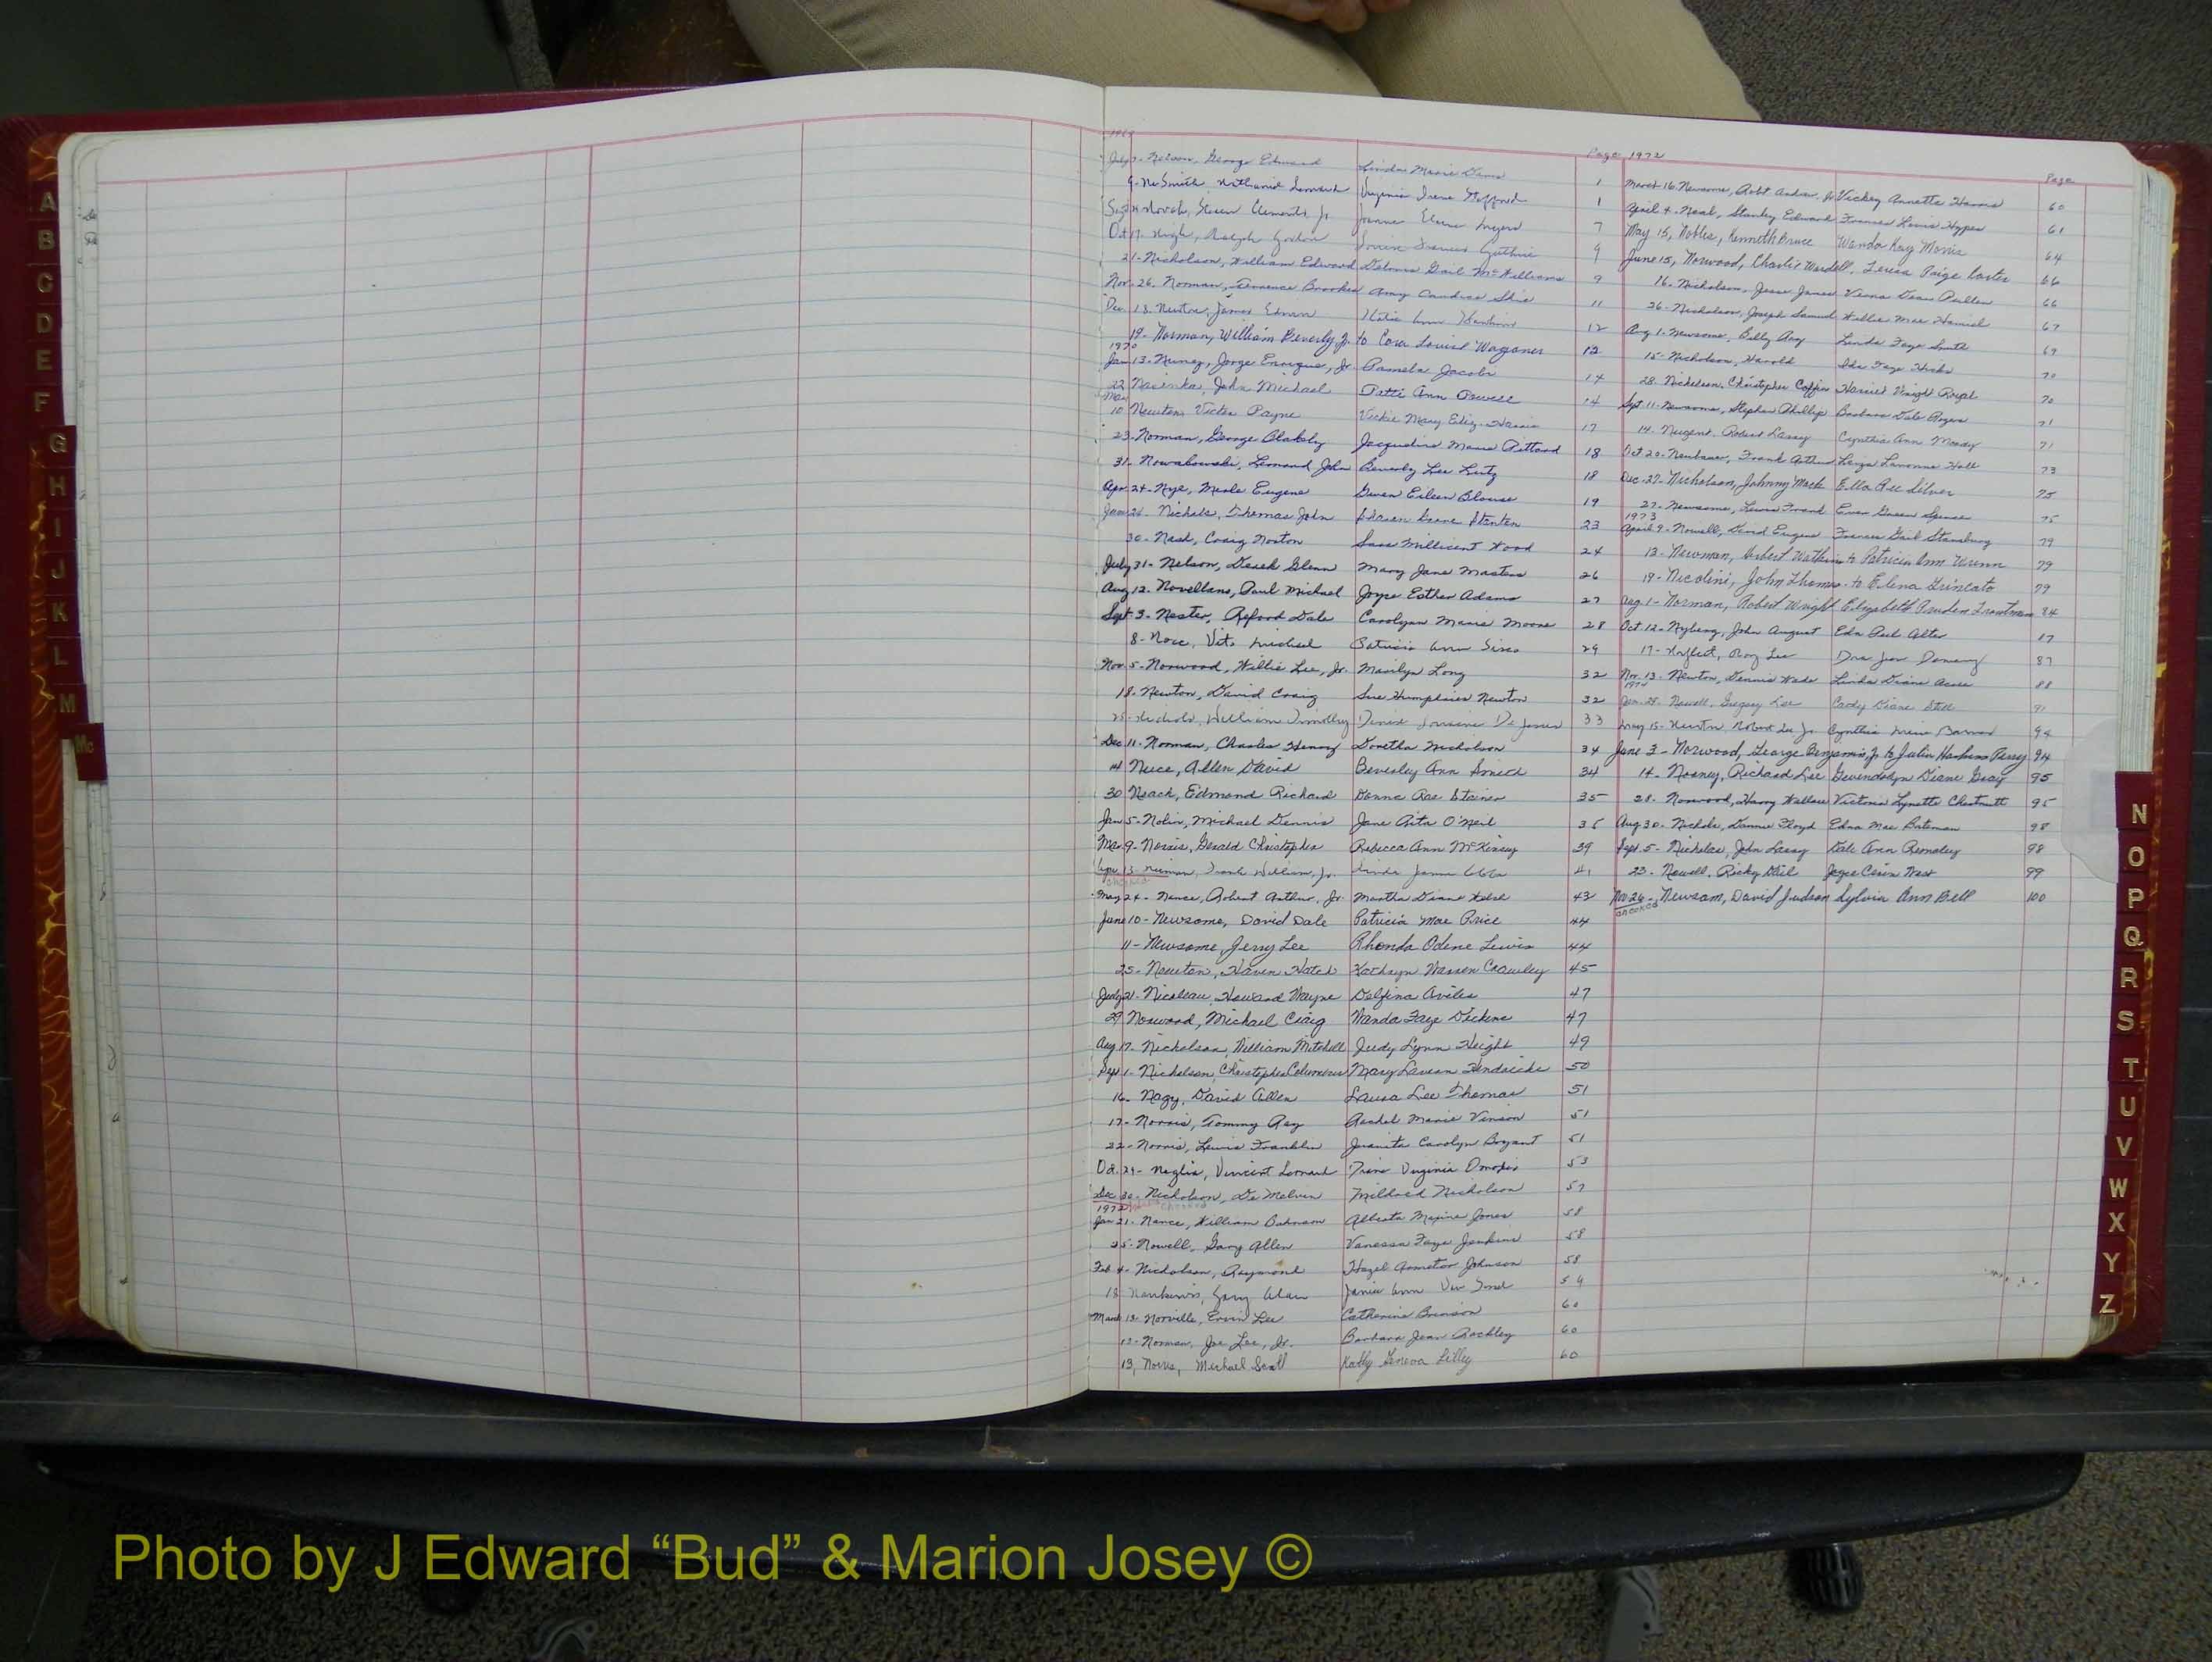 A
B
C
D
E
F
G
H
I
J
K
L
M
Mc
1969 Page
July Nelson, George Edward Linda Marie 1
9- NeSmith, Nathaniel Leonard Virginia Irene 1
Sept Steven Clements, Jr. Joanne Elaine 7
Oct 17- Ralph Gordon Frances Guthrie 9
21- Nicholson, William Edward Deloris Gail McWilliams 9
Nov. 26- Norman, Terrence Brookes Amy Candice 11
Dec. 13- Newton, James Edwin Katie Ann Hawkins 12
19- Norman, William Beverly, Jr. to Cora Louise Wagoner 12
1970
Jan 13- Nunez, Jorge Enrique, Jr. Pamela Jacobs 14
22 John Michael Patti Ann Powell 14
Mar
10 Newton, Victor Payne Vickie Mary Eliz. Harris 17
23- Norman, George Blakely Jacqueline Marie Pittard 18
31- Nowakowski, Leonard John Beverly Lee Lutz 18
Apr. 24- Nye, Merle Eugene Gwen Eileen Blouse 19
June 26- Nichols, Thomas John Sharon Stanton 23
30- Nash, Craig Norton Sara Millicent Wood 24
July 31- Nelson, Derek Glenn Mary Jane Masters 26
Aug 12- Novellano, Paul Michael Joyce Esther Adams 27
Sept 3- Nester, Reford Dale Carolynn Marie Moore 28
8- Noce, Vito Michael Patricia Ann 29
Nov. 5- Norwood, Willie Lee, Jr. Marilyn Long 32
18- Newton, David Craig Sue Humphries Newton 32
25- Nichols, William Timothy Denise Lorraine De Jones 33
Dec 11- Norman, Charles Henry Doretha Nicholson 34
14 Neice, Allen David Beverley Ann Smith 34
30 Noack, Edmond Richard Donna Rae Stainer 35
Jan 5- Nolin, Michael Dennis Jane Rita O'Neil 35
Mar. 9- Norris, Gerald Christopher Rebecca Ann McKinney 39
Apr. 13- Frank William, Jr. Linda Jamie 41
checked
May 24- Nance, Robert Arthur, Jr. Martha Diane Welch 43
June 10- Newsome, David Dale Patricia Mae Price 44
11- Newsome, Jerry Lee Rhonda Odene Lewis 44
25- Newton, Haven Hatch Kathryn Warren Crawley 45
July 21- Nicoleau, Howard Wayne Delfina Aviles 47
29 Norwood, Michael Craig Wanda Faye Dickens 47
Aug 17- Nicholson, William Mitchell Judy Lynn Height 49
Sept 1- Nicholson, Christopher Columbus Mary Lavern Hendricks 50
16- Nagy, David Allen Laura Lee Thomas 51
17- Norris, Tommy Ray Rachel Marie Vinson 51
22- Norris, Lewis Franklin Juanita Carolyn Bryant 51
Oct. 29- Neglia, Vincent Leonard Virginia 53
Dec 30- Nicholson, De Melvin Mildred Nicholson 57
1972 checked
Jan 21- Nance, William Bahnson Alberta Maxine Jones 58
25- Nowell, Gary Allen Vanessa Faye Jenkins 58
Feb 4- Nicholson, Raymond Hazel Armetor Johnson 58
18 Gary Alan Janie Ann 59
March 13- Norville, Ervin Lee Catherine Brinson 60
13- Norman, Joe Lee, Jr. Barbara Jean Rackley 60
13, Michael Scott Kathy Geneva Lilley 60
1972 Page
March 16- Newsome, Robt. Andrew, Jr. Vickey Annette Harris 60
April 4- Neal, Stanley Edward Frances Louise Hypes 61
May 15, Nobles, Kenneth Bruce Wanda Kay Morris 64
June 15, Norwood, Charlie Wardell, Teresa Paige Carter 66
16- Nicholson, Jesse James Verna Dean Pullen 66
26- Nicholson, Joseph Samuel Willie Mae Daniel 67
Aug 1- Newsome, Billy Ray Linda Faye Smith 69
15- Nicholson, Harold Ida Faye Hicks 70
28- Nickelsen, Christopher Coffin Harriet Wright Royal 70
Sept. 11- Newsome, Stephen Phillip Barbara Dale Rogers 71
14- Nugent, Robert Larry Cynthia Ann Moody 71
Oct 20- Neubauer, Frank Arthur Lavonne Hall 73
Dec. 27- Nicholson, Johnny Mack Ella Ree Silver 75
27- Newsome, Lewis Frank Green Spence 75
1973
April 9- Nowell, David Eugene Frances Gail Stansbury 79
13- Newman, Herbert Watkins to Patricia Ann Wrenn 79
19- Nicolini, John Thomas- to Elena Trincato 79
Aug 1- Norman, Robert Wright Elizabeth Pruden Troutman 84
Oct 12- Nyberg, John August Edna Peel Alter 87
17- Roy Lee Jean 87
Nov. 13- Newton, Dennis Wade Linda Diane 88
1974
Jan. 28- Nowell, Gregory Lee Cathy Diane Still 91
May 15- Newton Robert Lee Jr. Cynthia Irwin Barnes 94
June 3- Norwood, George Benjamin, Jr. to Julia Hawkins Perry 94
14- Nosney, Richard Lee Gwendolyn Diane Gray 95
28- Norwood, Harry Wallace Victoria Lynette Chestnutt 95
Aug 30- Nichols, Dannie Floyd Edna Mae Bateman 98
Sept. 5- Nicholas, John Larry Dale Ann Remsley 98
23- Newell, Ricky Dail Joyce West 99
Nov 26- Newsom, David Judson Sylvia Ann Bell 100
checked
N
O
P
Q
R
S
T
U
V
W
X
Y
Z
Photo by J Edward “Bud” & Marion Josey ©